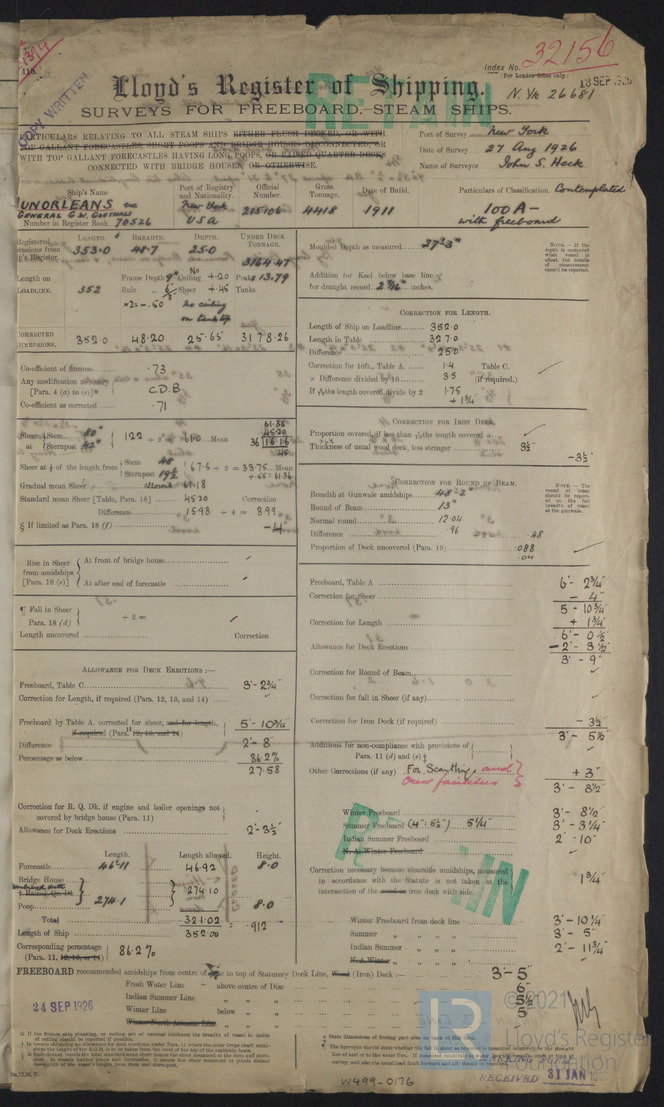 32156
Index No.
For London Office only.
13 SEP 1926
N. Yk 26681
COPY WRITTEN
RETAIN
Lloyd's Register of Shipping.
SURVEYS FOR FREEBOARD.—STEAM SHIPS.
PARTICULARS RELATING TO ALL STEAM SHIPS EITHER FLUSH DECKED, OR WITH
TOP GALLANT FORECASTLES, SHORT POOPS AND BRIDGE HOUSES DISCONNECTED, OR
WITH TOP GALLANT FORECASTLES HAVING LONG POOPS, OR RAISED QUARTER DECKS
CONNECTED WITH BRIDGE HOUSES, OR OTHERWISE.
Port of Survey New York
Date of Survey 27 Aug 1926
Name of Surveyor John S. Heck
Ship's Name
MUNORLEANS exc
GENERAL G.W. GOETHALS
Number in Register Book 70526
Port of Registry and Nationality.
New York
USA
Official Number.
215106
Gross Tonnage.
4418
Date of Build.
1911
Particulars of Classification. Contemplated
100A-
with freeboard
LENGTH. BREADTH. DEPTH. UNDER DECK TONNAGE.
353.0 48.7 25.0 3164.47
Length on LOADLINE. 352
Frame Depth 9" No Ceiling +.20 Peak 13.79
Rule 6 Sheer +.45 Tanks
×2 = -.50 No ceiling
on tank top
CORRECTED DIMENSIONS. 352.0 48.20 25.65 3178.26
Co-efficient of fineness .73
Any modification necessary
[Para. 4 (a) to (e)]* C.D.B.
Co-efficient as corrected .71
Sheer at { Stem 80" Sternpost 42" } 122 ÷ 2 = 61.0 Mean
61.36
45.20
36 16.16
.45
Sheer at 1/8 of the length from { Stem 48 Sternpost 19½ } 67.5 ÷ 2 = 33.75 Mean
÷ .55 = 61.36
Gradual mean Sheer allowed 61.18
Standard mean Sheer [Table, Para. 18] 45.20 Correction
Difference 15.98 ÷ 4 = 3.99
§ If limited as Para. 18 (f) -4"
Rise in Sheer from amidships [Para. 18 (e)]
At front of bridge house
At after end of forecastle
¶ Fall in Sheer
Para. 18 (d) ÷ 2 =
Length uncovered Correction
ALLOWANCE FOR DECK ERECTIONS :—
Freeboard, Table C 3'-2¾"
Correction for Length, if required (Para. 12, 13, and 14)
Freeboard by Table A. corrected for sheer, and for length,
if required (Para. 11 12, 13, and 14) 5'-10¾"
Difference 2'-8
Percentage as below 86.2%
27.58
Correction for R. Q. Dk. if engine and boiler openings not
covered by bridge house (Para. 11)
Allowance for Deck Erections 2'-3½"
Length. Length allowed. Height.
Forecastle 46'-11 46.92 8.0
Bridge House
combined with
Raised Qr. Dk.
274.1 274.10
Poop 8.0
Total 321.02 = .912
Length of Ship 352.00
Corresponding percentage
(Para. 11, 12, 13, or 14) 86.2%
Moulded Depth as measured 27'-3"
Addition for Keel below base line
for draught record 2 7/16" inches.
NOTE.—If the depth is measured when vessel is afloat, the details of measurement should be reported.
CORRECTION FOR LENGTH.
Length of Ship on Loadline 352.0
Length in Table 327.0
Difference 25.0
Correction for 10ft., Table A. 1.4 Table C.
× Difference divided by 10 3.5 (if required.)
If 6/10ths the length covered divide by 2 1.75
+ 1¾"
CORRECTION FOR IRON DECK.
Proportion covered, if less than 7/10ths length covered
Thickness of usual wood deck, less stringer 3½
-3½"
CORRECTION FOR ROUND OF BEAM.
Breadth at Gunwale amidships 48'-2"
Round of Beam 13"
Normal round 12.04
Difference .96 .48
Proportion of Deck uncovered (Para. 19) .088
.04
NOTE.—The round of beam should be reported on the full breadth of vessel at the gunwale.
Freeboard, Table A 6'-2¾"
Correction for Sheer - 4"
5-10¾
Correction for Length + 1¾"
6'-0½
Allowance for Deck Erections -2'-3½"
3'-9"
Correction for Round of Beam
Correction for fall in Sheer (if any)
Correction for Iron Deck (if required) - 3½
3'-5½
Additions for non-compliance with provisions of
Para. 11 (d) and (e) ‡
Other Corrections (if any) For Scantling, and
crew facilities + 3"
3'-8½"
Winter Freeboard 3'-8½
Summer Freeboard (4"-5½") 5¼" 3'-3¼"
Indian Summer Freeboard 2'-10"
N. A. Winter Freeboard
Correction necessary because clearside amidships, measured
in accordance with the Statute is not taken at the
intersection of the wood or iron deck with side. 1¾"
Winter Freeboard from deck line 3'-10¼"
Summer 3'-5"
Indian Summer 2'-11¾"
N. A. Winter
FREEBOARD recommended amidships from centre of Disc to top of Statutory Deck Line, Wood (Iron) Deck :— 3'-5"
Fresh Water Line above centre of Disc 6"
Indian Summer Line 5½
Winter Line below 5"
Winter North Atlantic Line
24 SEP 1926
RETAIN
W499-0176
RECEIVED 31 JAN
LR
© 2021
Lloyd's Register
Foundation